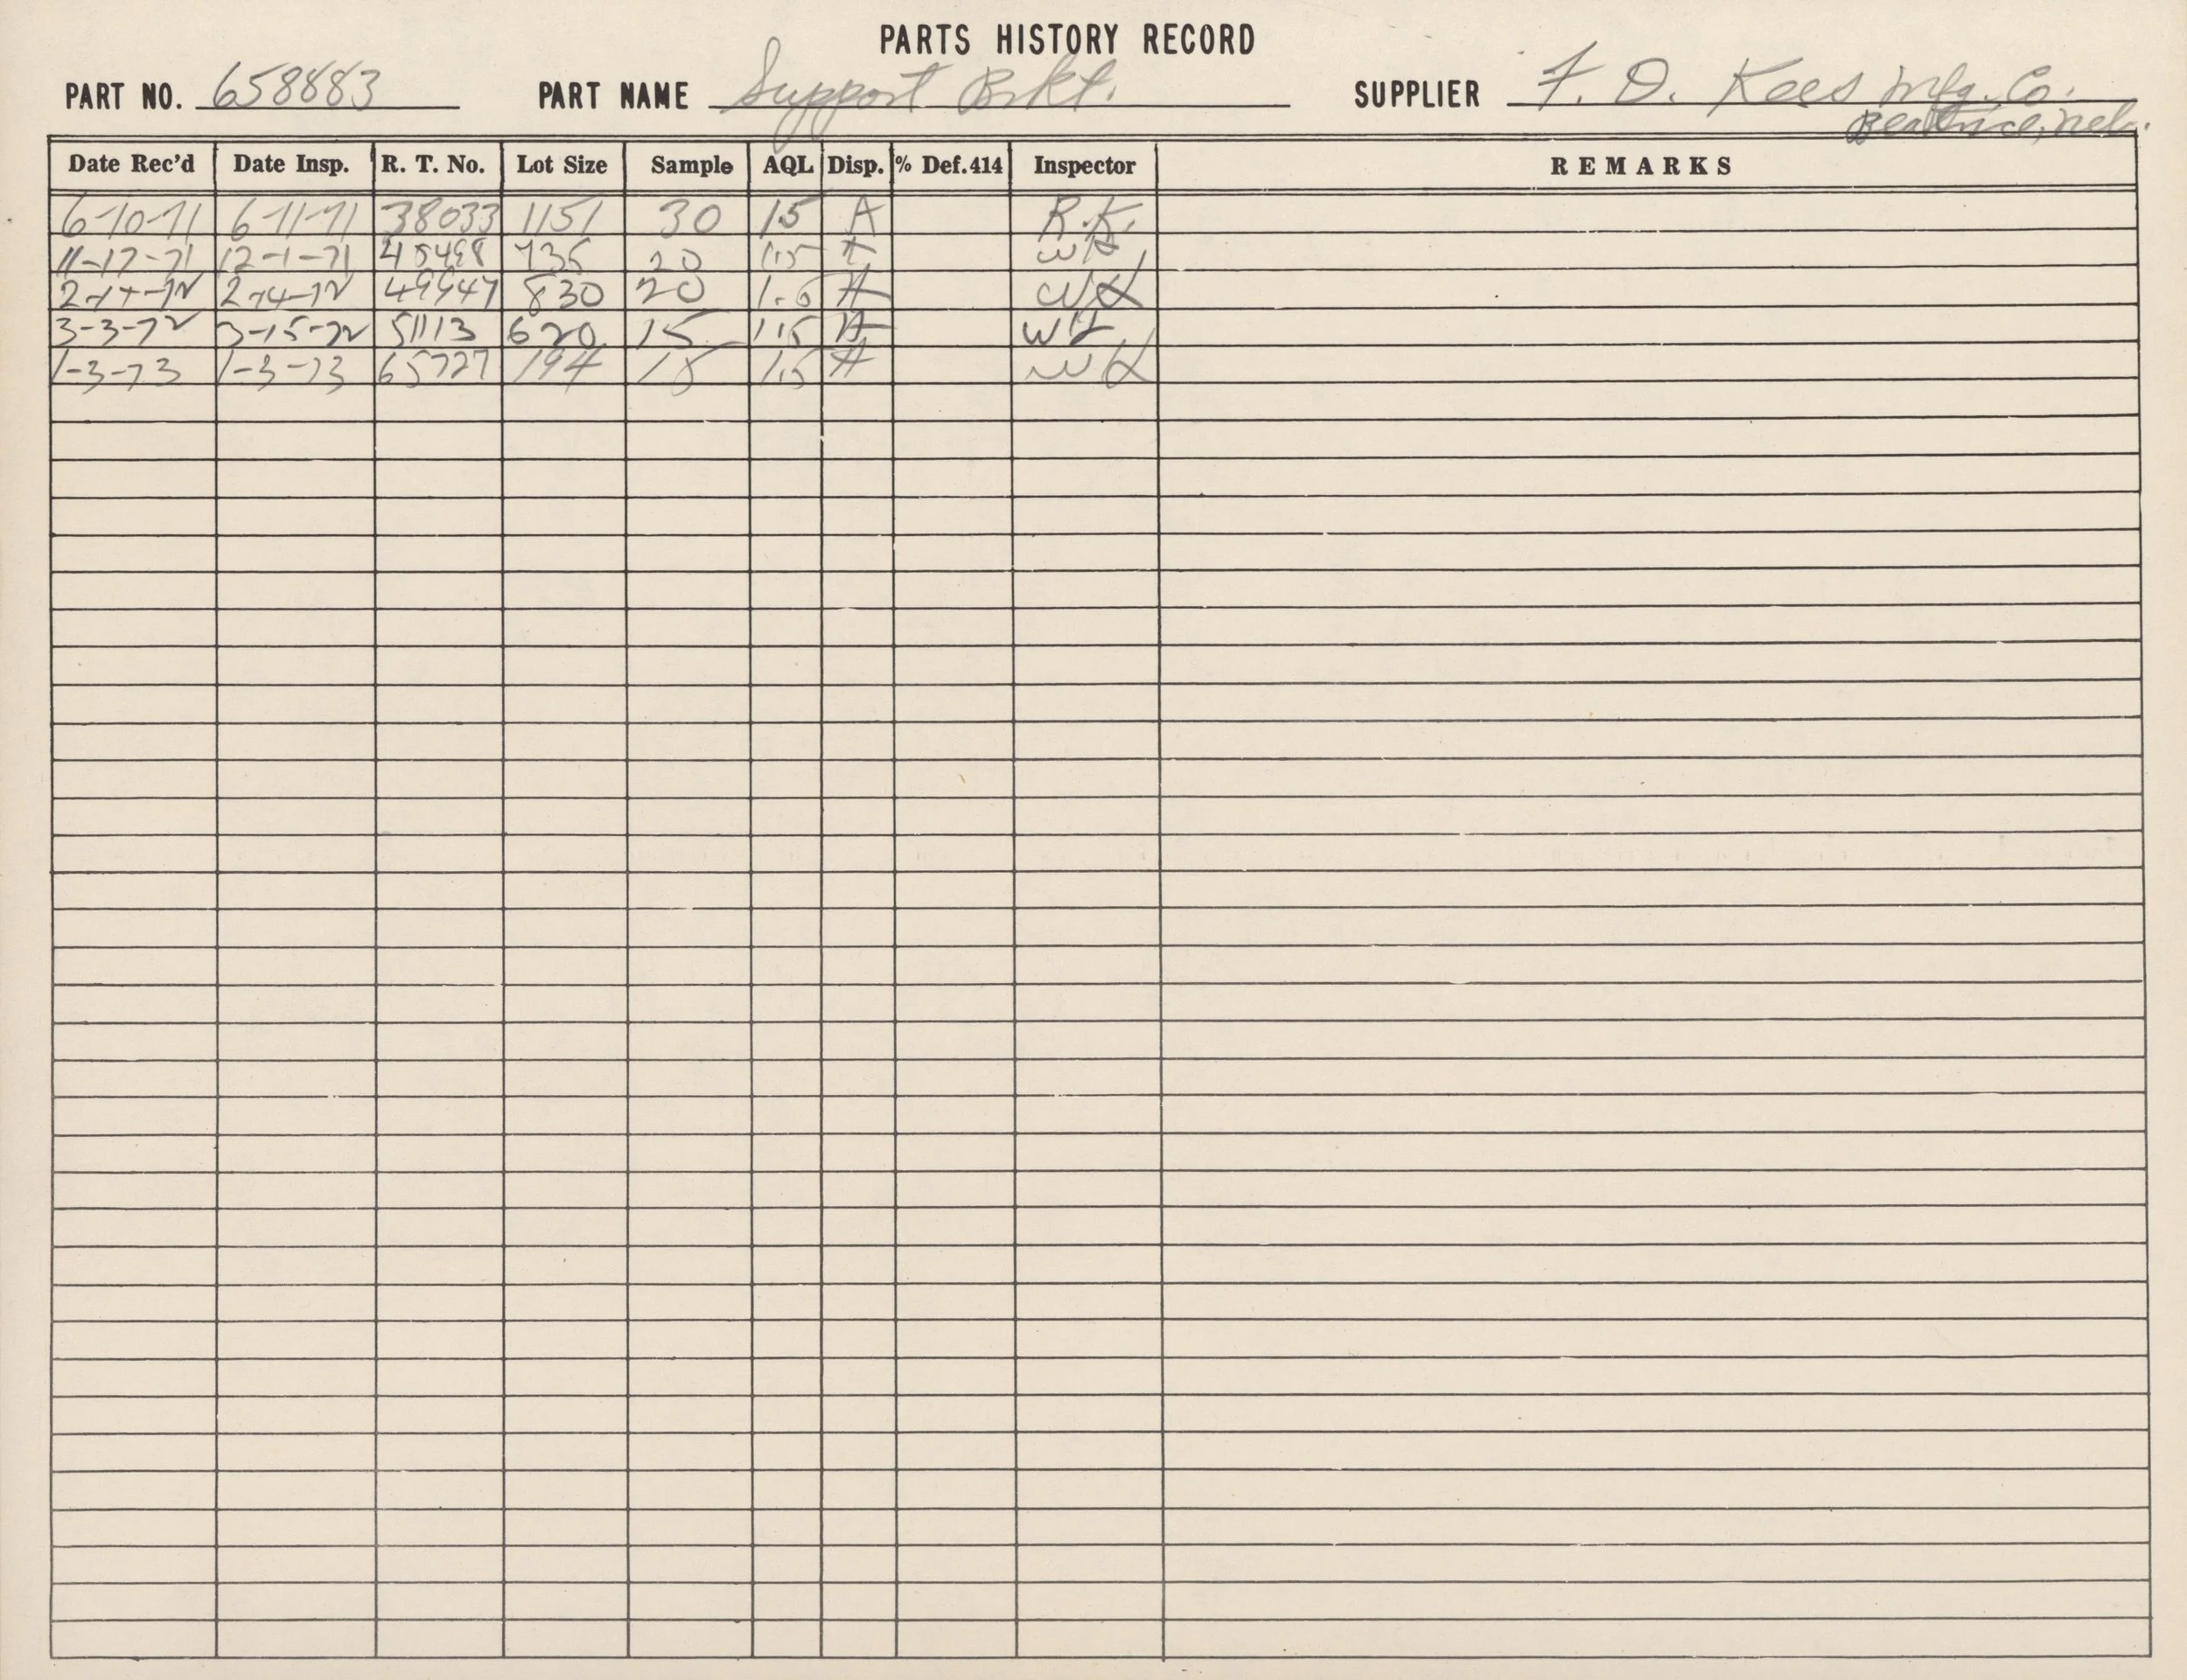 PARTS HISTORY RECORD
PART NO. 658883 PART NAME Support Brkt. SUPPLIER F. D. Kees Mfg. Co.
Beatrice, Neb.
Date Rec'd Date Insp. R. T. No. Lot Size Sample AQL Disp. % Def.414 Inspector REMARKS
6-10-71 6-11-71 38033 1151 30 15 A R.K.
11-17-71 12-1-71 20 1.5 A
49947 830 20 A WK
3-3-72 3-15-72 51113 620 15 1.5 A WK
1-3-73 1-3-73 65727 194 1.5 A WK